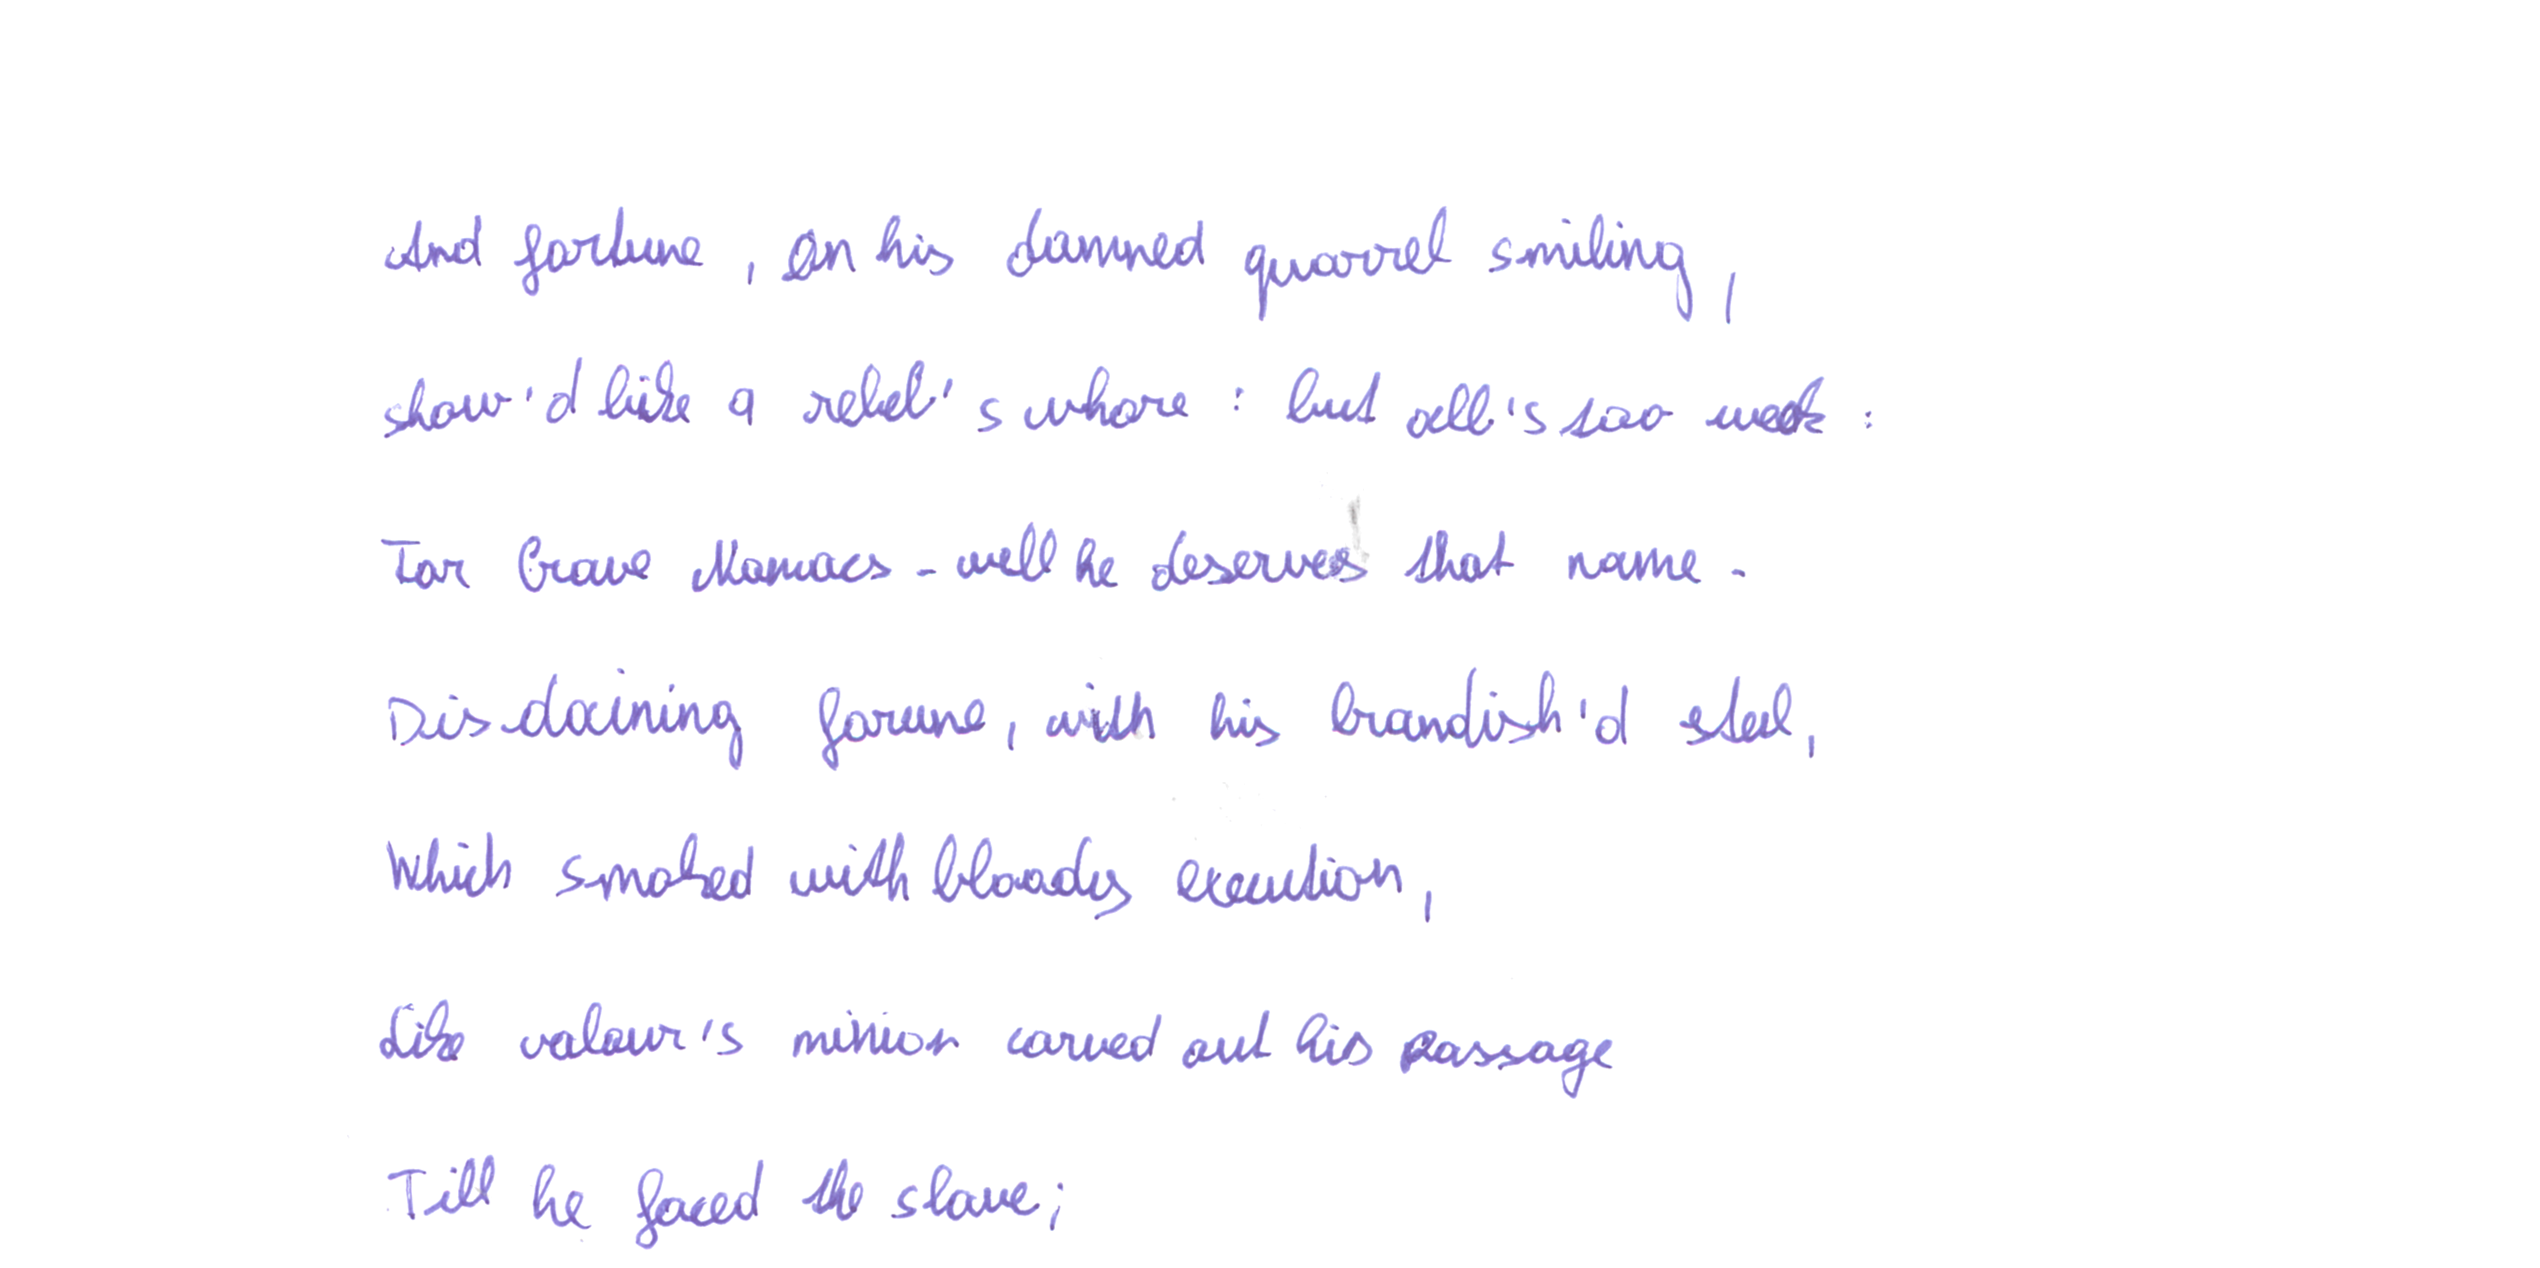 And fortune, on his damned quarrel smiling,
show'd like a rebel's whore: but all's too weak:
For brave Mamacs - well he deserves that name -
Disdaining forune, with his brandish'd steel,
Which smoked with bloody execution,
Like valour's minion carved out his passage
Till he faced the slave;